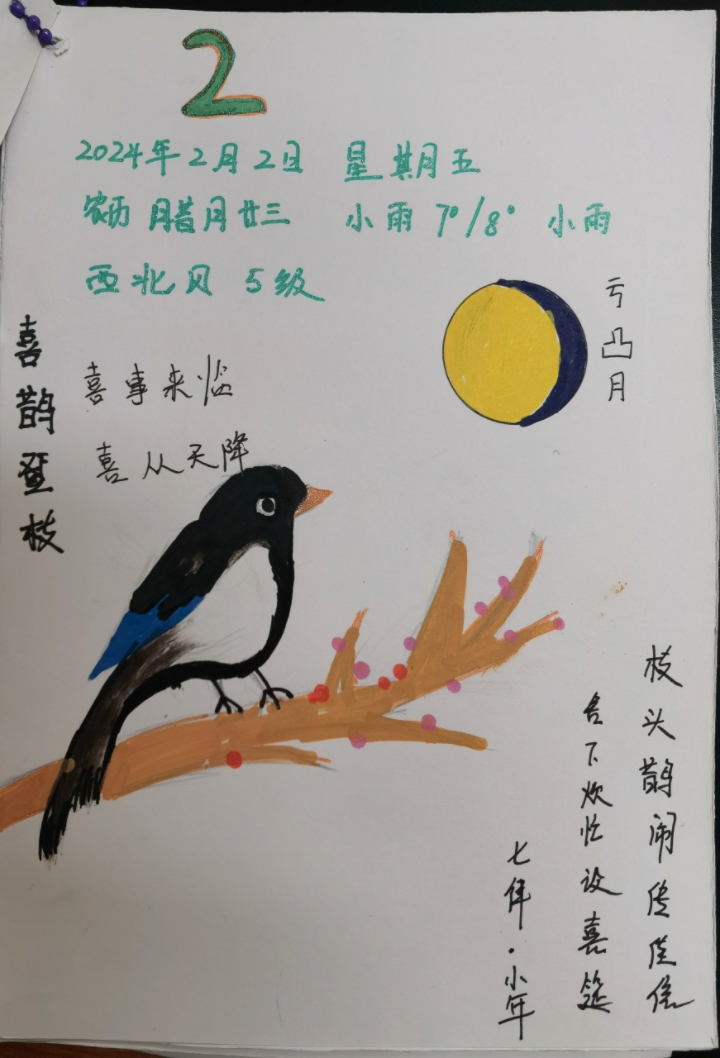 2
2024年2月2日 星期五
农历 腊月廿三 小雨 7°/8° 小雨
西北风 5级
亏凸月
喜鹊登枝
喜事来临
喜从天降
枝头鹊闹传佳信
台下炊忙设喜筵
七律·小年